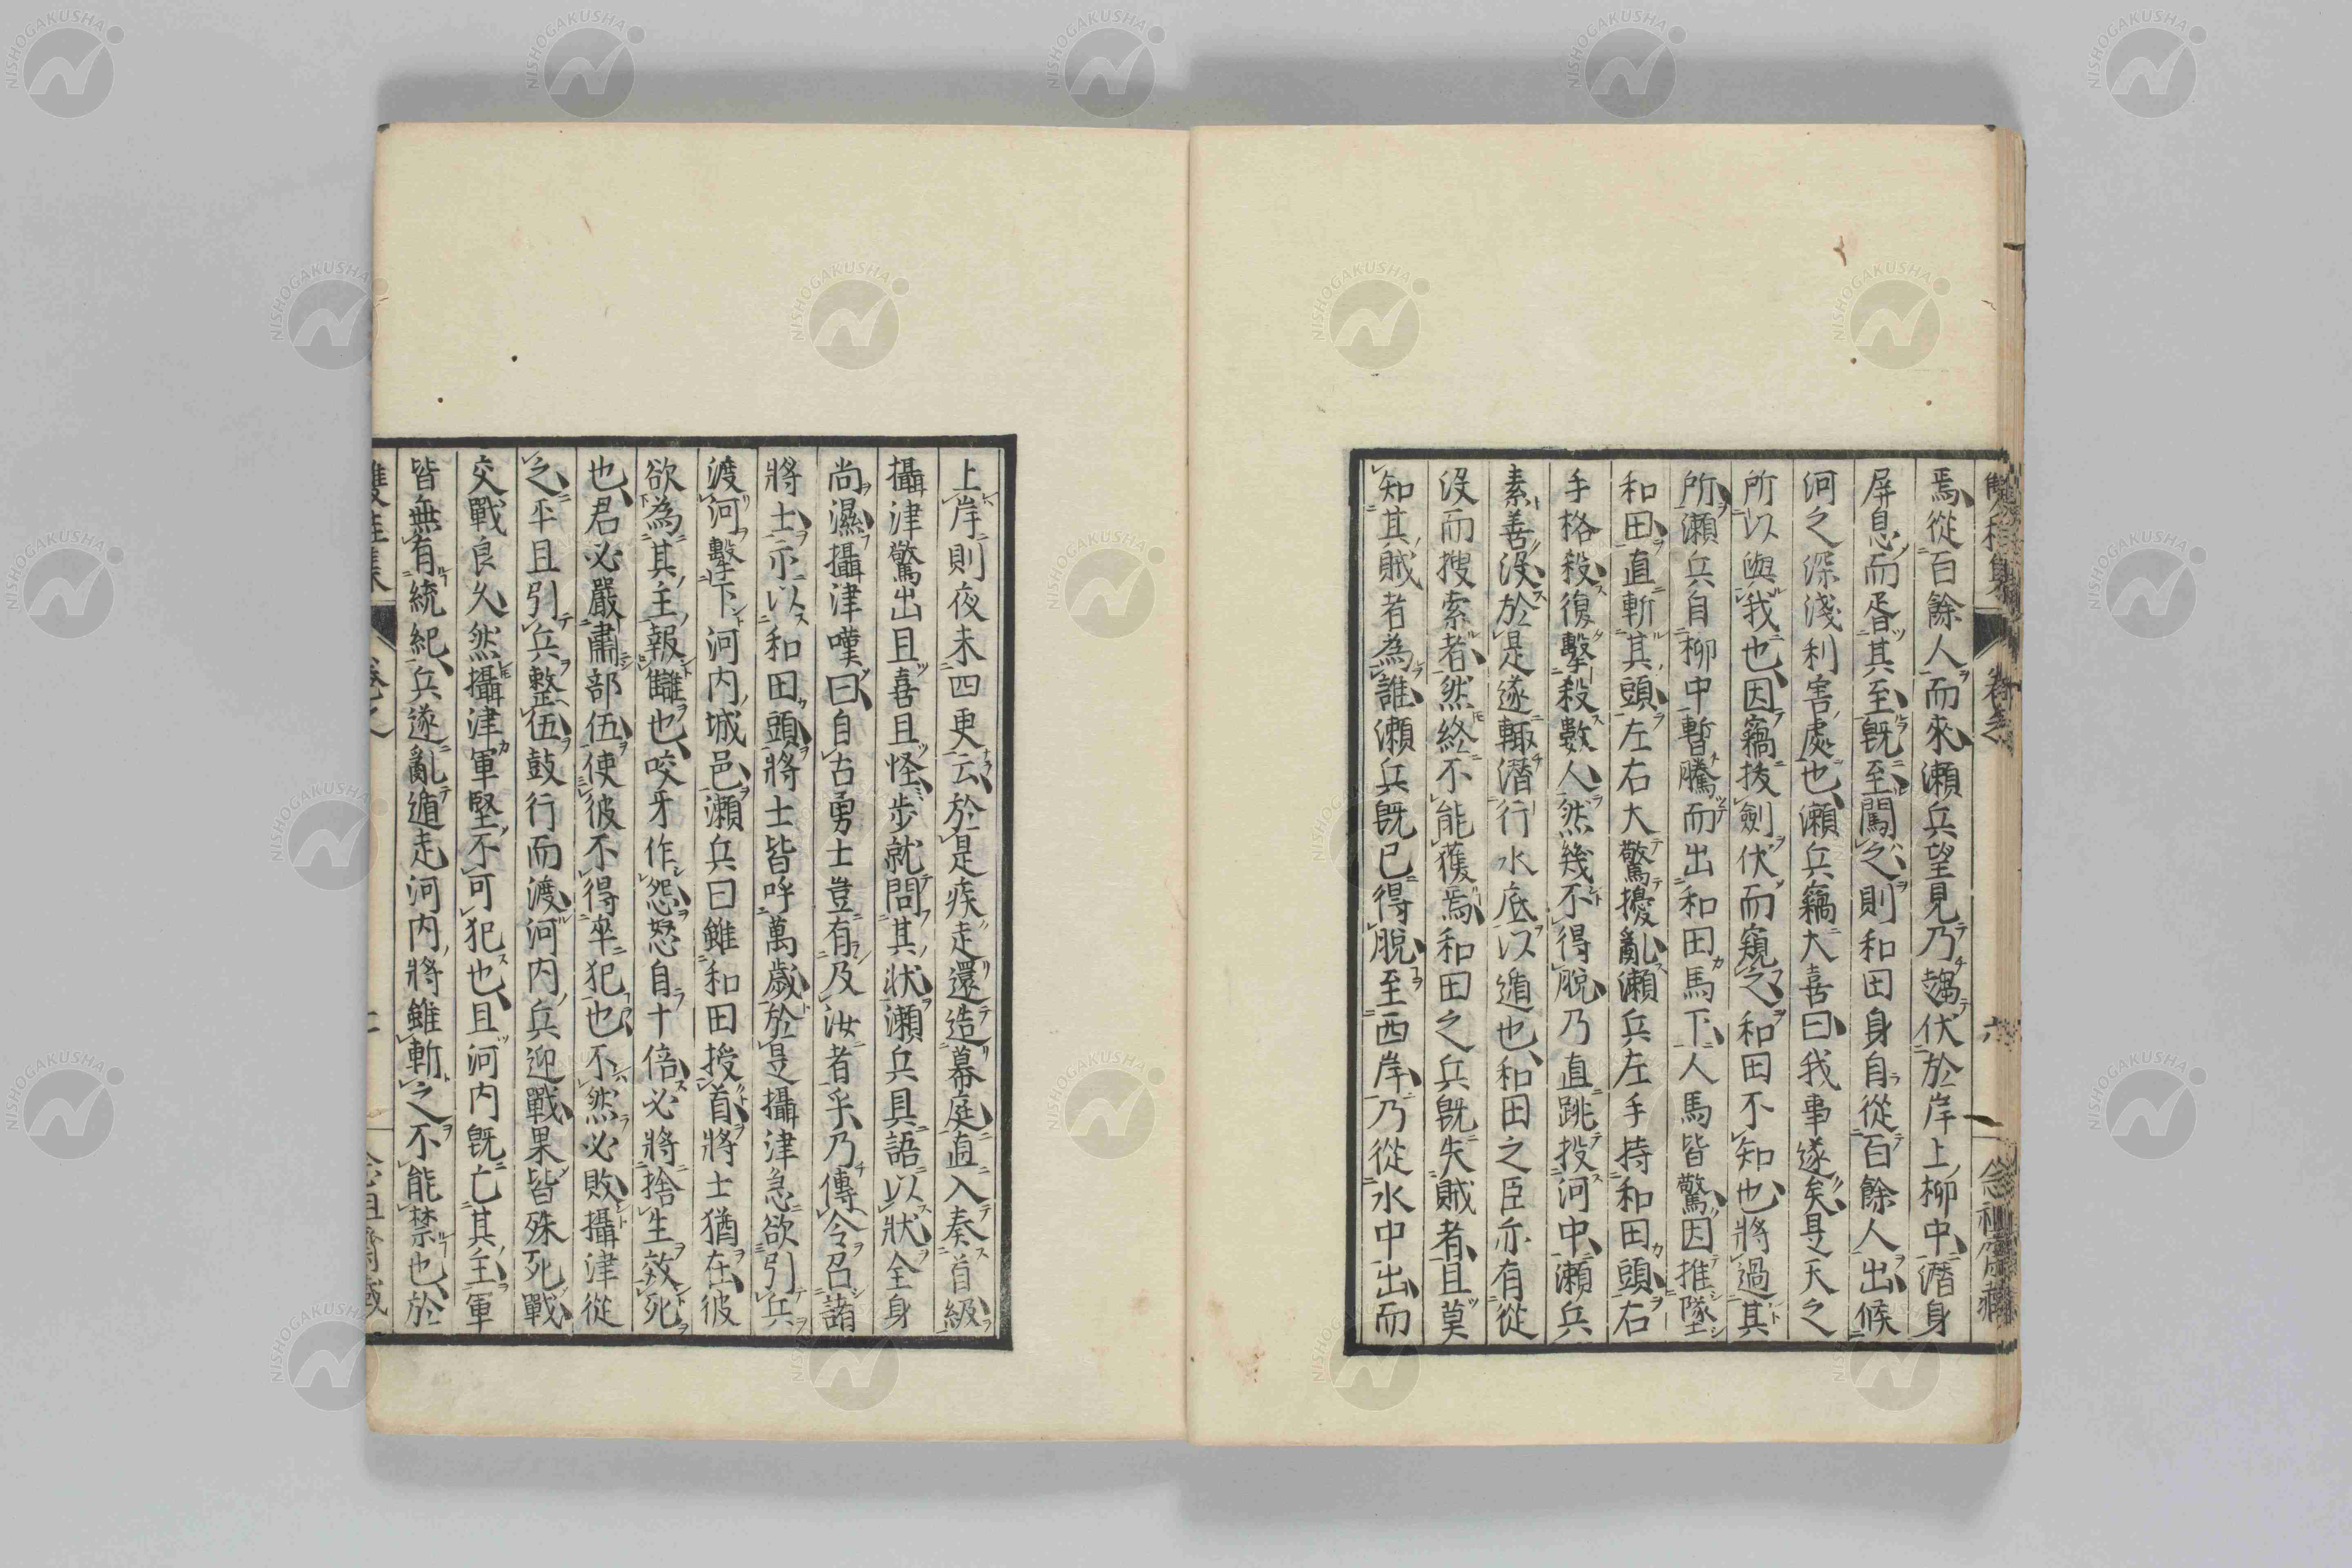 焉從百餘人而來瀨兵望見乃趨伏於岸上柳中潛身
屏息而胥其至既至闖之則和田身自從百餘人出候
河之深淺利害處也瀨兵竊大喜曰我事遂矣是天之
所以與我也因竊拔劍伏而窺之和田不知也將過其
所瀨兵自柳中暫騰而出和田馬下人馬皆驚因推墜
和田直斬其頭左右大驚擾亂瀨兵左手持和田頭右
手格殺復擊殺數人然幾不得脫乃直跳投河中瀨兵
素善沒於是遂輙潛行水底以遁也和田之臣亦有從
沒而搜索者然終不能獲焉和田之兵既失賊者且莫
知其賊者為誰瀨兵既已得脫至西岸乃從水中出而
上岸則夜未四更云於是疾走還造幕庭直入奏首級
攝津驚出且喜且怪步就問其狀瀨兵具語以狀全身
尚濕攝津嘆曰自古勇士豈有及汝者乎乃傳令召諸
將士示以和田頭將士皆呼萬歲於是攝津急欲引兵
渡河擊下河内城邑瀨兵曰雖和田授首將士猶在彼
欲為其主報讎也咬牙作怨怒自十倍必將捨生效死
也君必嚴肅部伍使彼不得卒犯也不然必敗攝津從
之平且引兵整伍鼓行而渡河内兵迎戰果皆殊死戰
交戰良久然攝津軍堅不可犯也且河内既亡其主軍
皆無有統紀兵遂亂遁走河内將雖斬之不能禁也於